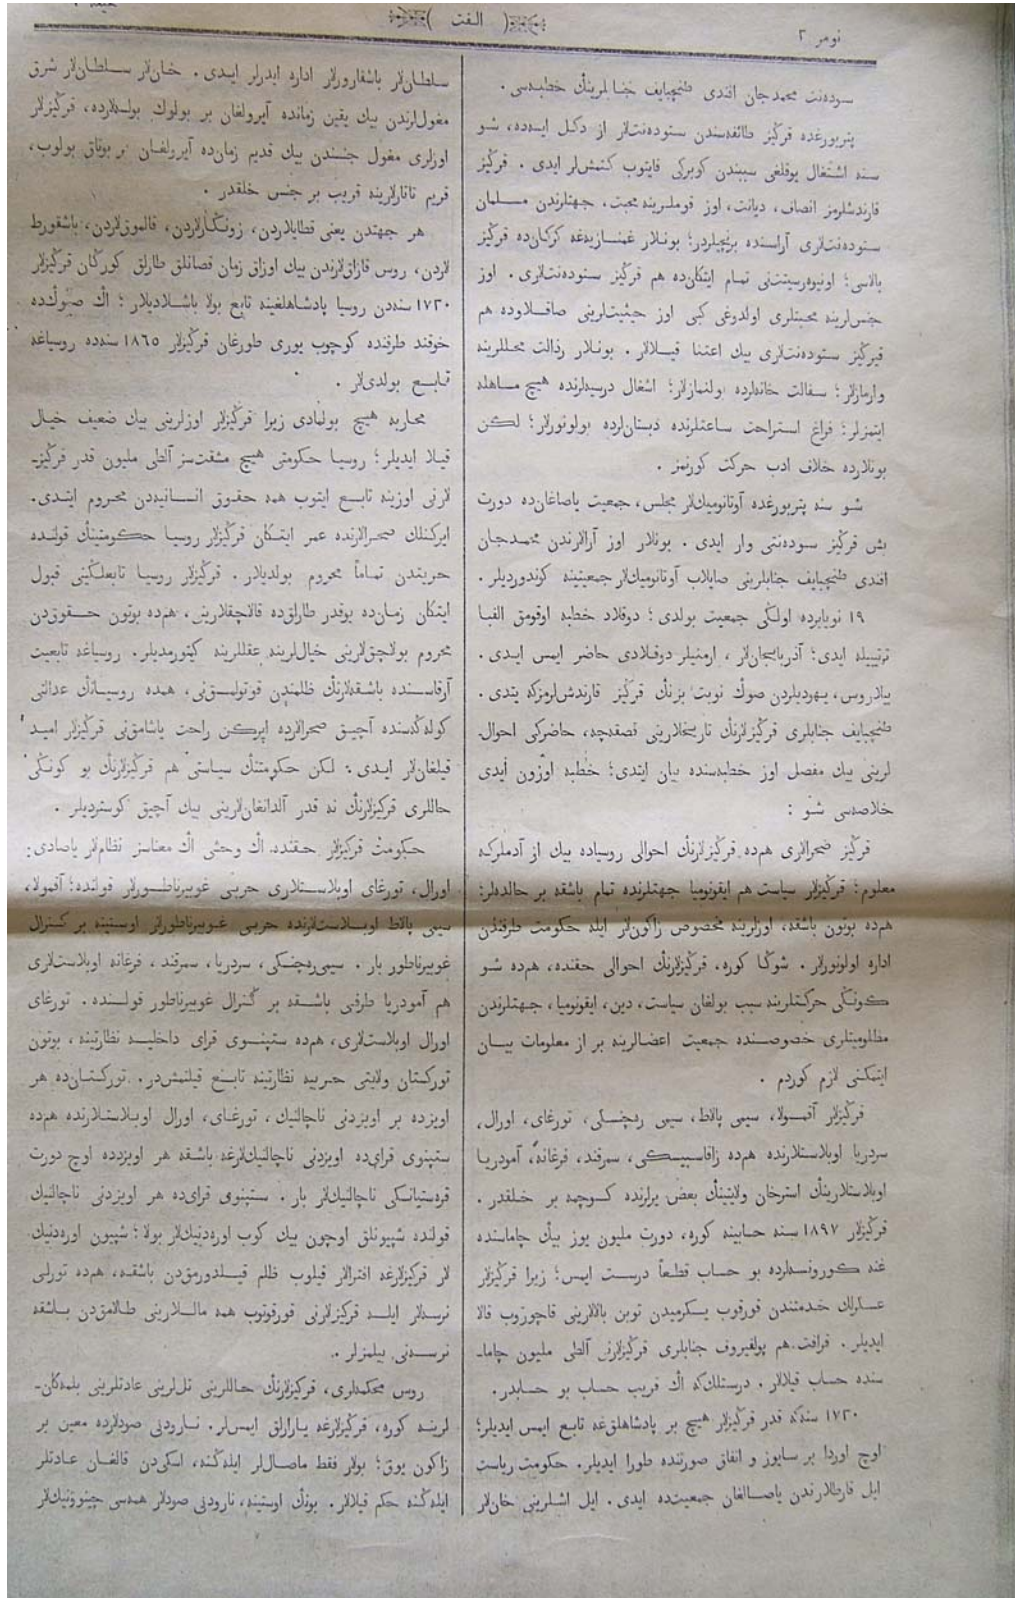 نومر ٢
( الفت )
سوده‌نت محمدجان افندی طنچبایف جنابلرینڭ خطبه‌سی.
پتربورغده قرڭیز طائفه‌سندن ستوده‌نت‌لار از دكل ایسه‌ده، شو
سنه اشتغال یوقلغی سببندن كوبركی قایتوب كتمش‌لر ایدی . قرڭیز
قارندشلرمز انصاف، دیانت، اوز قوملرینه محبت، جهتلرندن مسلمان
ستوده‌نت‌لری آراسنده برنچیلردر؛ بونلار غمنازیه‌غه كركان‌ده قرڭیز
بالاسی؛ اونیوه‌رسیتتنی تمام ایتكان‌ده هم قرڭیز ستوده‌نت‌لری. اوز
جنس‌لرینه محبتلری اولدوغی كبی اوز حیثیت‌لرینی صاقلاوده هم
قیرڭیز ستوده‌نت‌لری بیك اعتنا قیلالار. بونلار رذالت محللرینه
وارمازلار؛ سفالت خانه‌لرده بولنمازلار؛ اشغال درسیه‌لرنده هیچ مساهله
ایتمزلر؛ فراغ استراحت ساعتلرنده دبستان‌لرده بولونورلار؛ لكن
بونلارده خلاف ادب حركت كورنمز .
شو سنه پتربورغده آوتانومیك‌لار مجلس، جمعیت یاصاغان‌ده دورت
بش قرڭیز سوده‌نتی وار ایدی . بونلار اوز آرالارندن محمدجان
افندی طنچبایف جنابلرینی صایلاب آوتانومیك‌لار جمعیتینه كوندوردیلر.
١٩ نویابرده اولكی جمعیت بولدی؛ دوقلاد خطبه اوقومق الفبا
ترتیبیله ایدی؛ آذربایجان‌لار ، ارمنیلر دوقلادی حاضر ایمس ایدی.
بیلاروس، یهودیلردن صوڭ نوبت بزنڭ قرڭیز قارندش‌لرمزكه یتدی.
طنچبایف جنابلری قرڭیزلارنڭ تاریخلارینی قصقه‌چه، حاضركی احوال-
لرینی بیك مفصل اوز خطبه‌سنده بیان ایتدی؛ خطبه اوزون ایدی
خلاصه‌سی شو :
قرڭیز صحرالری هم‌ده قرڭیزلارنڭ احوالی روسیاده بیك از آدملرگه
معلوم؛ قرڭیزلار سیاست هم ایقونومیا جهتلرنده تمام باشقه بر حالده‌لر؛
هم‌ده بوتون باشقه، اوزلرینه مخصوص زاكون‌لار ایله حكومت طرفندن
اداره اولونورلار . شوڭا كوره، قرڭیزلارنڭ احوالی حقنده، هم‌ده شو
كونڭی حركتلرینه سبب بولغان سیاست، دین، ایقونومیا، جهتلرندن
مظلومیتلری خصوصنده جمعیت اعضالرینه بر از معلومات بیان
ایتمكنی لازم كوردم .
قرڭیزلار آقمولا، سیمی پالاط، سیمی ره‌چنسكی، تورغای، اورال،
سردریا اوبلاستلارنده هم‌ده زاقاسپیسكی، سمرقند، فرغانه، آمودریا
اوبلاستلارینڭ استرخان ولایتینڭ بعض یرلرنده كوچمه بر خلقدر .
قرڭیزلار ١٨٩٧ سنه حسابینه كوره، دورت ملیون یوز بیڭ چاماسنده
غنه كورونسه‌لرده بو حساب قطعاً درست ایمس؛ زیرا قرڭیزلار
عسكرلك خدمتندن قورقوب یكرمیدن توبن بالالارینی قاچوروب قالا
ایدیلر . قرافت هم پولفیروف جنابلری قرڭیزلارنی آلطی ملیون چاما-
سنده حساب قیلالار . درستلك‌كه اڭ قریب حساب بو حسابدر.
١٧٣٠ سنه‌گه قدر قرڭیزلار هیچ بر پادشاهلق‌غه تابع ایمس ایدیلر؛
اوچ اوردا بر سایوز و اتفاق صورتنده طورا ایدیلر. حكومت ریاست
ایل قارطلارندن یاصالغان جمعیت‌ده ایدی. ایل اشلرینی خان‌لار
سلطان‌لار باشقارورلار اداره ایدرلر ایدی. خان‌لار سلطان‌لار شرق
مغول‌لرندن بیك یقین زمانده آیرولغان بر بولوك بولسه‌لارده، قرڭیزلار
اوزلری مغول جنسندن بیك قدیم زمان‌ده آیرولغان بر بوتاق بولوب،
قریم تاتارلارینه قریب بر جنس خلقدر .
هر جهتدن یعنی قطایلاردن، زونڭارلاردن، قالموق‌لاردن، باشقورط
لاردن، روس قازاق‌لارندن بیك اوزاق زمان قصانلق طارلق كورڭان قرڭیزلار
١٧٣٠ سنه‌دن روسیا پادشاهلغینه تابع بولا باشلادیلار؛ اڭ صوڭ‌ده
خوقند طرفنده كوچوب یوری طورغان قرڭیزلار ١٨٦٥ سنه‌ده روسیاغه
تابع بولدی‌لار .
محاربه هیچ بولمادی زیرا قرڭیزلار اوزلرینی بیك ضعیف خیال
قیلا ایدیلر؛ روسیا حكومتی هیچ مشقت‌سز آلطی ملیون قدر قرڭیز-
لارنی اوزینه تابع ایتوب همه حقوق انسانیه‌دن محروم ایتدی.
ایركنلك صحرالارنده عمر ایتكان قرڭیزلار روسیا حكومتینڭ قولنده
حریتدن تماماً محروم بولدیلار. قرڭیزلار روسیا تابعلكینی قبول
ایتكان زمان‌ده بوقدر طارلق‌ده قالاچقلارینی، هم‌ده بوتون حقوق‌دن
محروم بولاچق‌لارینی خیال‌لرینه عقللرینه كیتورمدیلر. روسیاغه تابعیت
آرقاسنده باشقه‌لارنڭ ظلمندن قوتولمق‌نی، همده روسیانڭ عدالتی
كوله‌گه‌سنده آچیق صحرالارده ایركن راحت یاشامق‌نی قرڭیزلار امید
قیلغان‌لار ایدی؛ لكن حكومتنڭ سیاستی هم قرڭیزلارنڭ بو كونڭی
حاللری قرڭیزلارنڭ نه قدر آلدانغان‌لارینی بیك آچیق كوستردیلر .
حكومت قرڭیزلار حقنده اڭ وحشی اڭ معناسز نظام‌لار یاصادی:
اورال، تورغای اوبلاستلاری حربی غوبیرناطورلار قولنده؛ آقمولا،
سیمی پالاط اوبلاست‌لارنده حربی غوبیرناطورلار اوستینه بر گنرال
غوبیرناطور بار. سیمی‌ره‌چنسكی، سردریا، سمرقند، فرغانه اوبلاست‌لاری
هم آمودریا طرفی باشقه بر گنرال غوبیرناطور قولنده. تورغای
اورال اوبلاست‌لاری، هم‌ده ستپنوی قرای داخلیه نظارتینه، بوتون
توركستان ولایتی حربیه نظارتینه تابع قیلنمش‌در. توركستان‌ده هر
اویزده بر اویزدنی ناچالنیك، تورغای، اورال اوبلاستلارنده هم‌ده
ستپنوی قرای‌ده اویزدنی ناچالنیك‌لارغه باشقه هر اویزده اوچ دورت
قره‌ستیانسكی ناچالنیك‌لار بار. ستپنوی قرای‌ده هر اویزدنی ناچالنیك
قولنده شپیونلق اوچون بیك كوب اوره‌دنیك‌لار بولا؛ شپیون اوره‌دنیك-
لار قرڭیزلارغه افترالار قیلوب ظلم قیلدورمق‌دن باشقه، هم‌ده تورلی
نرسه‌لار ایله قرڭیزلارنی قورقوتوب همه مال‌لارینی طالامق‌دن باشقه
نرسه‌نی بیلمزلر .
روس محكمه‌لری، قرڭیزلارنڭ حاللرینی تل‌لرینی عادتلرینی بلمه‌گان-
لرینه كوره، قرڭیزلارغه یارارلق ایمس‌لر. نارودنی صودلارده معین بر
زاكون یوق؛ بولار فقط ماصال‌لر ایله‌گنه، اسكی‌دن قالغان عادتلر
ایله‌گنه حكم قیلالار. بونڭ اوستینه، نارودنی صودلار همه‌سی چینوونیك‌لار